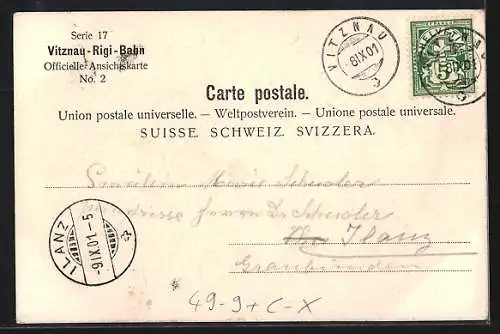 Serie 17
Vitznau-Rigi-Bahn
Officielle Ansichtskarte
No. 2
VITZNAU
-8IX01
VITZNAU
5
Carte postale.
Union postale universelle. — Weltpostverein. — Unione postale universale.
SUISSE. SCHWEIZ. SVIZZERA.
Fräulein Marie Schuoler
Adresse Herrn Dr Schuoler
Ilanz
Graubünden
ILANZ
-9IX01-5
49-9+C-X